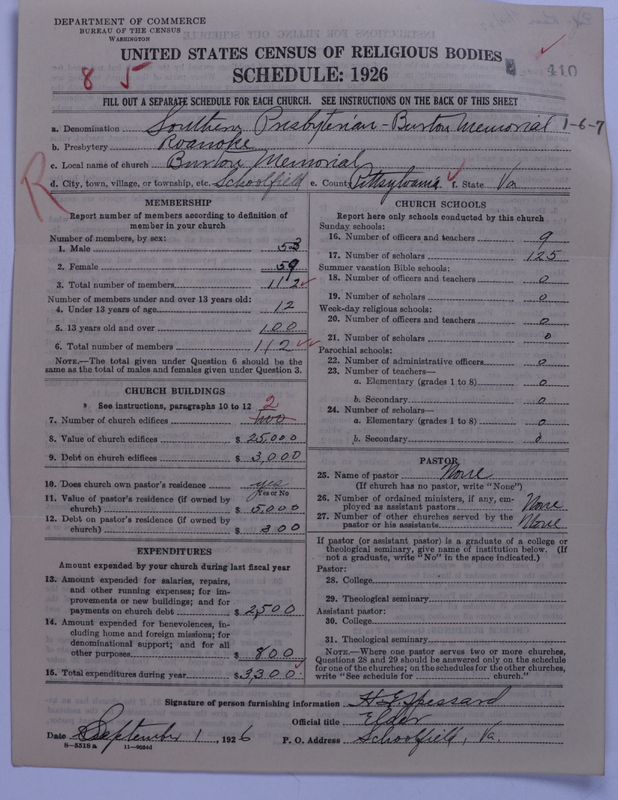 DEPARTMENT OF COMMERCE
BUREAU OF THE CENSUS
WASHINGTON
UNITED STATES CENSUS OF RELIGIOUS BODIES
SCHEDULE: 1926
8 5
410
FILL OUT A SEPARATE SCHEDULE FOR EACH CHURCH. SEE INSTRUCTIONS ON THE BACK OF THIS SHEET
a. Denomination Southern Presbyterian - Burton Memorial 1-6-7
b. Presbytery Roanoke
c. Local name of church Burton Memorial
d. City, town, village, or township, etc. Schoolfield e. County Pittsylvania f. State Va
R
MEMBERSHIP
Report number of members according to definition of
member in your church
Number of members, by sex:
1. Male 53
2. Female 59
3. Total number of members 112
Number of members under and over 13 years old:
4. Under 13 years of age 12
5. 13 years old and over 100
6. Total number of members 112
NOTE.—The total given under Question 6 should be the
same as the total of males and females given under Question 3.
CHURCH BUILDINGS
See instructions, paragraphs 10 to 12 2
7. Number of church edifices two
8. Value of church edifices $ 25,000
9. Debt on church edifices $ 3,000
10. Does church own pastor's residence yes
Yes or No
11. Value of pastor's residence (if owned by
church) $ 5,000
12. Debt on pastor's residence (if owned by
church) $ 300
EXPENDITURES
Amount expended by your church during last fiscal year
13. Amount expended for salaries, repairs,
and other running expenses; for im-
provements or new buildings; and for
payments on church debt $ 2,500
14. Amount expended for benevolences, in-
cluding home and foreign missions; for
denominational support; and for all
other purposes $ 800
15. Total expenditures during year $ 3,300
CHURCH SCHOOLS
Report here only schools conducted by this church
Sunday schools:
16. Number of officers and teachers 9
17. Number of scholars 125
Summer vacation Bible schools:
18. Number of officers and teachers 0
19. Number of scholars 0
Week-day religious schools:
20. Number of officers and teachers 0
21. Number of scholars 0
Parochial schools:
22. Number of administrative officers 0
23. Number of teachers—
a. Elementary (grades 1 to 8) 0
b. Secondary 0
24. Number of scholars—
a. Elementary (grades 1 to 8) 0
b. Secondary 0
PASTOR
25. Name of pastor None
(If church has no pastor, write "None")
26. Number of ordained ministers, if any, em-
ployed as assistant pastors None
27. Number of other churches served by the
pastor or his assistants None
If pastor (or assistant pastor) is a graduate of a college or
theological seminary, give name of institution below. (If
not a graduate, write "No" in the space indicated.)
Pastor:
28. College
29. Theological seminary
Assistant pastor:
30. College
31. Theological seminary
NOTE.—Where one pastor serves two or more churches,
Questions 28 and 29 should be answered only on the schedule
for one of the churches; on the schedules for the other churches,
write "See schedule for church."
Signature of person furnishing information H. E. Spessard
Official title Elder
Date September 1, 1926 P. O. Address Schoolfield, Va.
8-5318 a 11-9024d